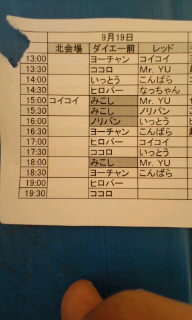 9月19日
北会場 ダイエー前 レッド
13:00 ヨーチャン コイコイ
13:30 ココロ Mr. YU
14:00 いっとう こんぱら
14:30 ヒロバー なっちゃん
15:00 コイコイ みこし Mr. YU
15:30 みこし ノリパン
16:00 ノリパン いっとう
16:30 ヨーチャン こんぱら
17:00 ヒロバー コイコイ
17:30 ココロ いっとう
18:00 みこし Mr. YU
18:30 ヨーチャン こんぱら
19:00 ヒロバー
19:30 ココロ